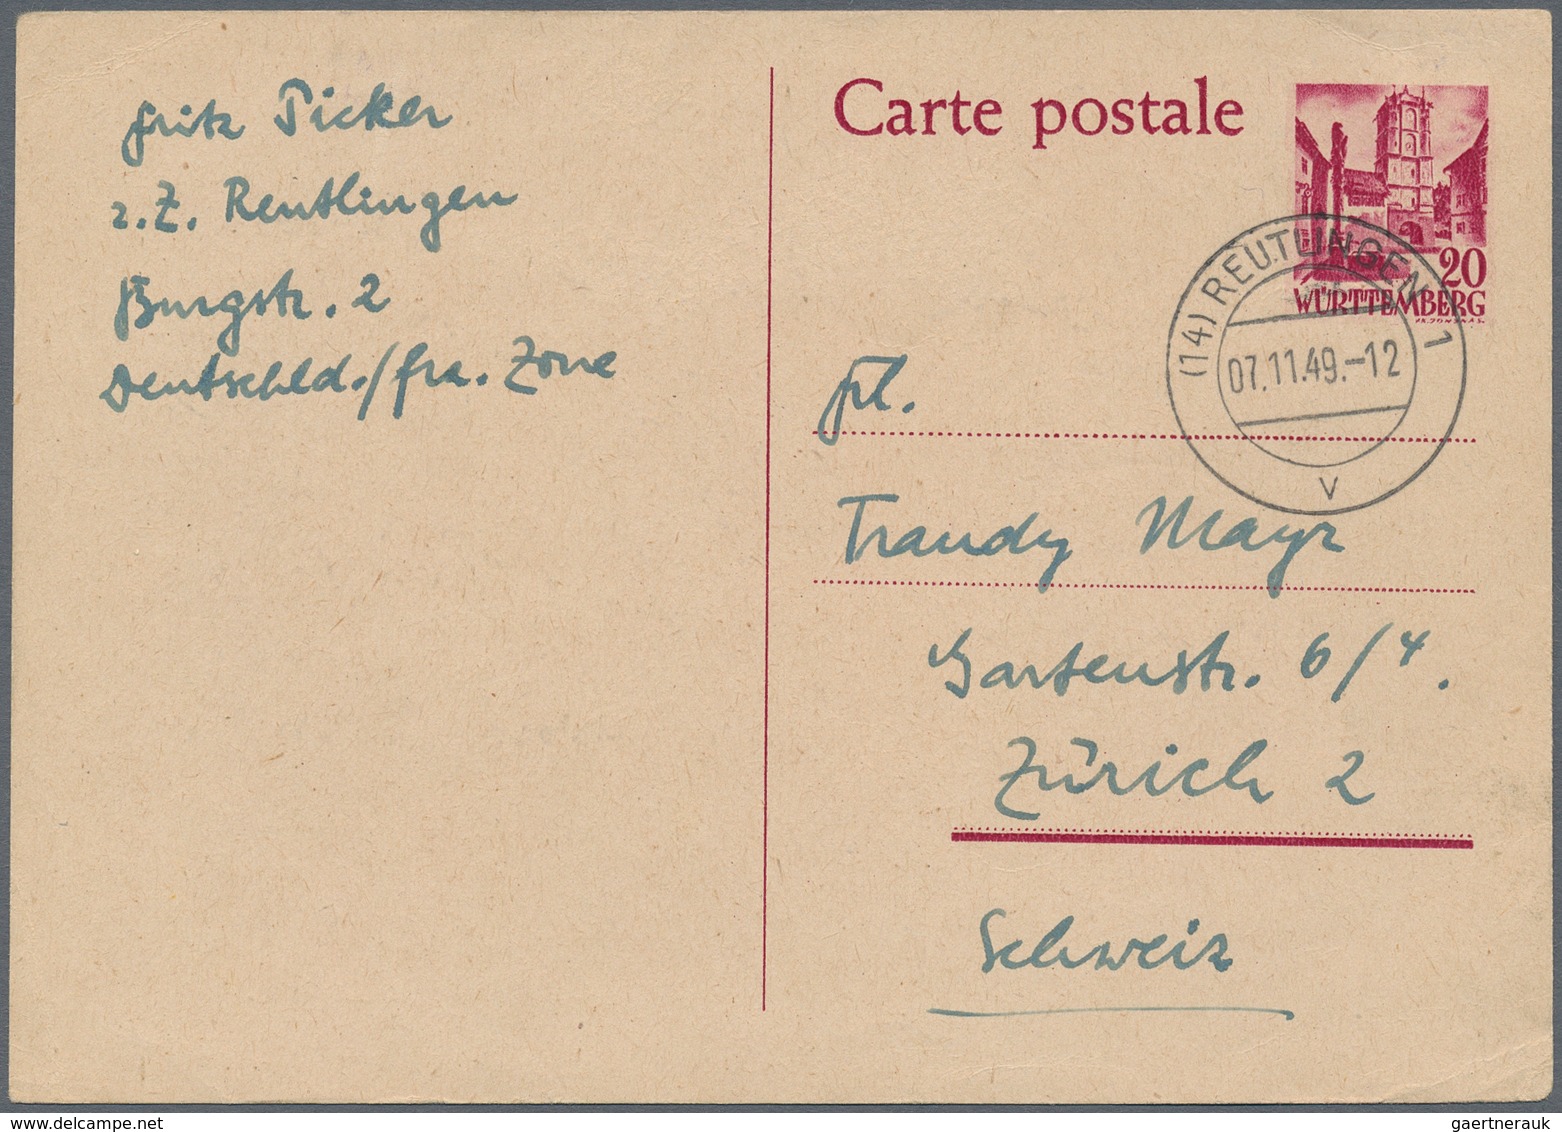 Fritz Picker
z.Z. Reutlingen
Burgstr. 2
Deutschld./frz. Zone
Carte postale
20
WÜRTTEMBERG
(14) REUTLINGEN 1
07.11.49.-12
v
Frl.
Traudy Mayr
Gartenstr. 6/4.
Zürich 2
Schweiz
gaertnerauk @ delcampe.net